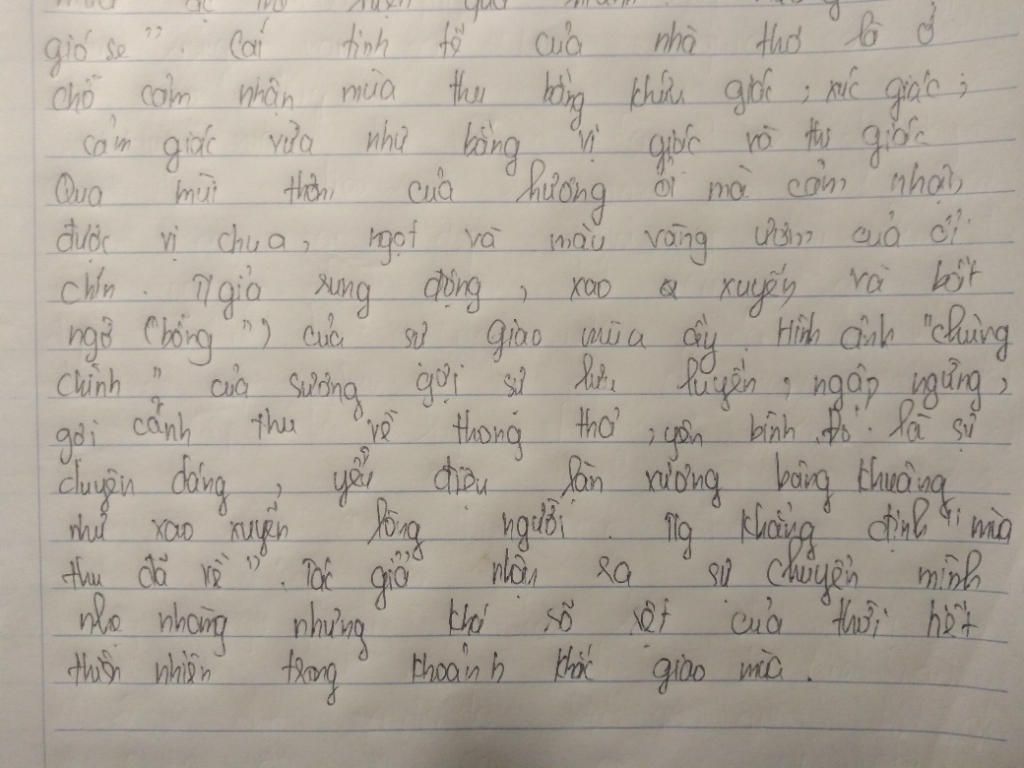 gió se". Cái tinh tế của nhà thơ là ở
chỗ cảm nhận mùa thu bằng khứu giác, xúc giác,
cảm giác vừa như bằng vị giác và thị giác
Qua mùi thơm của hương ổi mà cảm nhận
được vị chua, ngọt và màu vàng ươm của ổi
chín. Tgiả rung động, xao xuyến và bất
ngờ (bỗng") của sự giao mùa ấy. Hình ảnh "chùng
chình" của sương gợi sự lưu luyến, ngập ngừng,
gợi cảnh thu về thong thả, yên bình. Đó là sự
duyên dáng, yểu điệu làn sương bâng khuâng
như xao xuyến lòng người. Tg khẳng định "mùa
thu đã về". Tác giả nhận ra sự chuyển mình
nhẹ nhàng nhưng khá rõ rệt của thời tiết
thiên nhiên trong khoảnh khắc giao mùa.